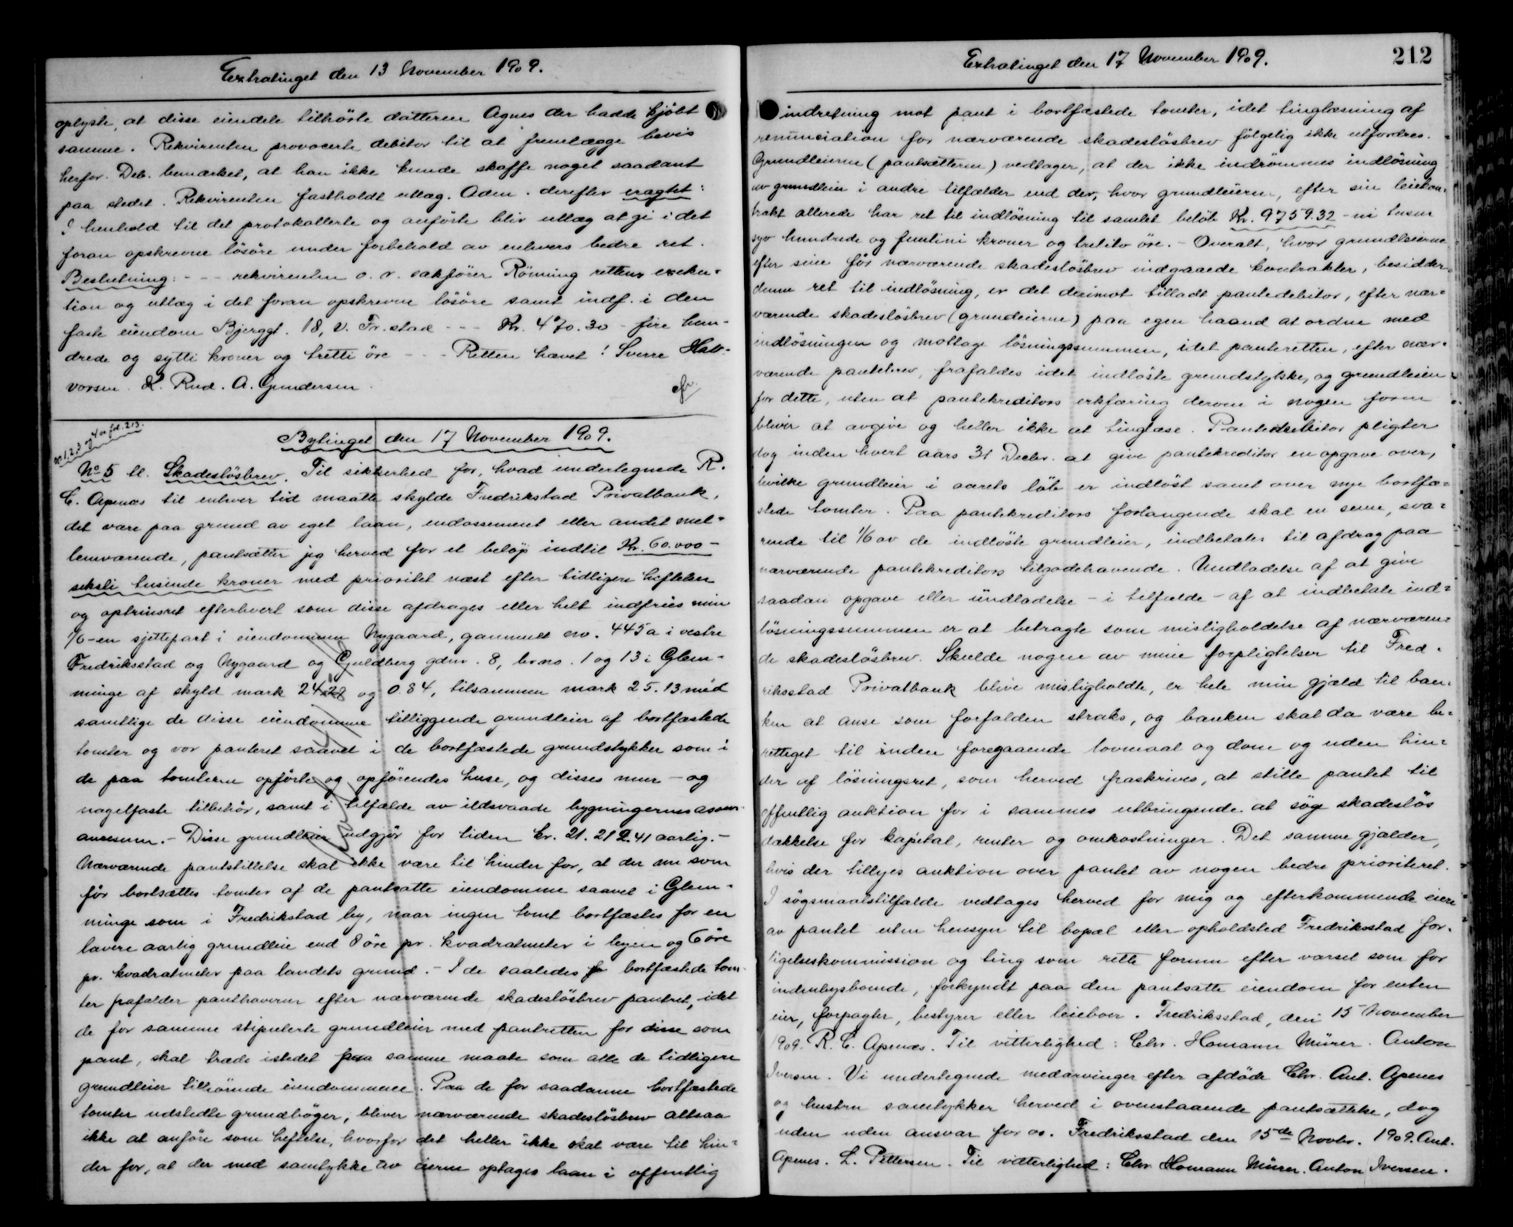 Extratinget den 13 November 1909.
oplyste, at disse eiendele tilhörte datteren Agnes der hadde kjöbt
samme. Rekvirenten provocerte debitor til at fremlægge bevis
herfor. Deb. bemærket, at han ikke kunde skaffe noget saadant
paa stedet. Rekvirenten fastholdt utlæg. Adm. derefter eragtet:
I henhold til det protokollerte og anförte blir utlæg at gi i det
foran opskrevne lösöre under forbehold av enhvers bedre ret.
Beslutning: - - - rekvirenten o. r. sakförer Rönning rettens execu-
tion og utlæg i det foran opskrevne lösöre samt indf. i den
faste eiendom Bjerggt. 18, V. Fr.stad - - - Kr. 470.30 - fire hun-
drede og sytti kroner og tretti öre - - - Retten hævet! Sverre Hall-
vorsen. K. Rud. A. Gundersen.
No 1, 2, 3 og 4 se fol. 213.
Bytinget den 17 November 1909.
No 5 bl. Skadeslösbrev. Til sikkerhed for, hvad undertegnede R.
C. Apenæs til enhver tid maatte skylde Fredrikstad Privatbank,
det være paa grund av eget laan, endossement eller andet mel-
lemværende, pantsætter jeg herved for et belöp indtil Kr. 60.000 -
seksti tusinde kroner med prioritet næst efter tidligere heftelser
og oprinsret efterhvert som disse afdrages eller helt indfries min
1/6 - en sjettepart i eiendommen Nygaard, gammelt no. 445a i vestre
Fredriksstad og Nygaard og Guldberg gdnr. 8, brno. 1 og 13 i Glem-
minge af skyld mark 24.29 og 0.84, tilsammen mark 25.13 med
samtlige de disse eiendomme tilliggende grundleier af bortfæstede
tomter og vor panteret saavel i de bortfæstede grundstykker som i
de paa tomterne opförte og opförendes huse, og disses mur- og
nagelfaste tilbehör, samt i tilfælde av ildsvaade bygningernes assu-
ancesum. - Disse grundleier udgjör for tiden kr. 21.212.41 aarlig. -
Nærværende pantstillelse skal ikke være til hinder for, at der nu som
för bortsættes tomter af de pantsatte eiendomme saavel i Glem-
minge som i Fredrikstad by, naar ingen tomt bortfæstes for en
lavere aarlig grundleie end 8 öre pr. kvadratmeter i byen og 6 öre
pr. kvadratmeter paa landets grund. - I de saaledes bortfæstede tom-
ter frafalder panthaveren efter nærværende skadeslösbrev pantret, idet
de for samme stipulerte grundleier med pantretten for disse som
pant, skal træde istedet paa samme maate som alle de tidligere
grundleier tilhörende eiendommene. Paa de for saadanne bortfæstede
tomter udstedte grundböger, bliver nærværende skadeslösbrev altsaa
ikke at anföre som heftelse, hvorfor det heller ikke skal være til hin-
der for, at der med samtykke av eierne optages laan i offentlig
Extratinget den 17 November 1909.
212
indretning mot pant i bortfæstede tomter, idet tinglæsning af
renunciation for nærværende skadeslösbrev fölgelig ikke utfordres.
Grundeierne (pantsætterne) vedtager, at der ikke indrömmes indlösning
av grundleie i andre tilfælder end der, hvor grundleieren, efter sin leiekon-
trakt allerede har ret til indlösning til samlet belöb Kr. 9759.32 - ni tusen
syv hundrede og femtini kroner og trettito öre. - Overalt, hvor grundleierne
efter sine för nærværende skadeslösbrev indgaaede kontrakter, besidder
denne ret til indlösning, er det derimot tilladt pantedebitor, efter nær-
værende skadeslösbrev (grundeierne) paa egen haand at ordne med
indlösningen og mottage lösningssummen, idet panteretten, efter nær-
værende pantebrev, frafaldes idet indlöste grundstykke, og grundleien
for dette, uten at pantekreditors erklæring derom i nogen form
blivir at avgive og heller ikke at tinglæse. Pantedebitor pligter
dog inden hvert aars 31 Decbr. at give pantekreditor en opgave over,
hvilke grundleier i aarets löb er indlöst samt over nye bortfæ-
stede tomter. Paa pantekreditors forlangende skal en sum, sva-
rende til 1/6 av de indlöste grundleier, indbetales til afdrag paa
nærværende pantekreditors tilgodehavende. Undladelse af at give
saadan opgave eller undladelse - i tilfælde - af at indbetale ind-
lösningssummen er at betragte som misligholdelse af nærværen-
de skadeslösbrev. Skulde nogen av mine forpligtelser til Fred-
riksstad Privatbank blive misligholdte, er hele min gjæld til ban-
ken at anse som forfalden straks, og banken skal da være be-
rettiget til uden foregaaende lovmaal og dom og uden hin-
der af lösningsret, som herved fraskrives, at stille pantet til
offentlig auktion for i sammes utbringende at söge skadeslös
dækkelse for kapital, renter og omkostninger. Det samme gjælder,
hvis der tillyses auktion over pantet av nogen bedre prioriteret.
I sögsmaalstilfælde vedtages herved for mig og efterkommende eiere
av pantet uten hensyn til bopæl eller opholdsted Fredriksstad for-
ligelseskommission og ting som rette forum efter varsel som for
indenbysboende, forkyndt paa den pantsatte eiendom for enten
eier, forpagter, bestyrer eller leieboer. Fredriksstad, den 15 November
1909. R. C. Apenæs. Til vitterlighed: Chr. Homann Mürer. Anton
Iversen. Vi undertegnede medarvinger efter afdöde Chr. Ant. Apenes
og hustru samtykker herved i ovenstaaende pantsættelse, dog
uden uden ansvar for os. Fredriksstad den 15de Novbr. 1909. Ant.
Apenes. L. Pettersen. Til vitterlighed: Chr Homann Mürer. Anton Iversen.